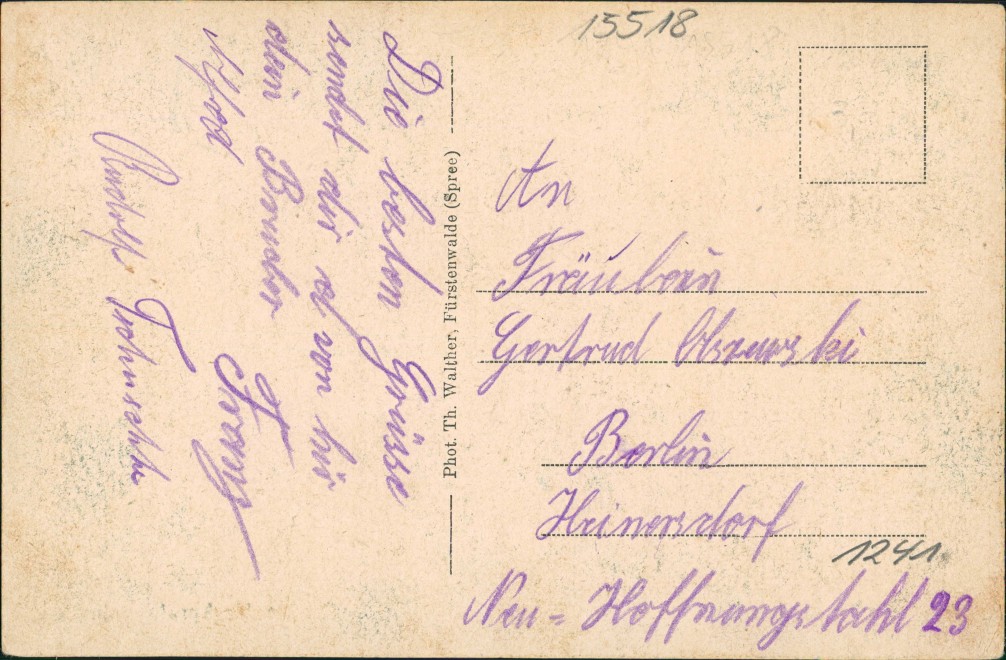 15518
Die besten Grüsse
sendet dir von hir
dein Bruder
Franz
Rudolf
Phot. Th. Walther, Fürstenwalde (Spree)
An
Fräulein
Gertrud
Berlin
Heinersdorf
1241
Neu = Hoffnungstahl 23